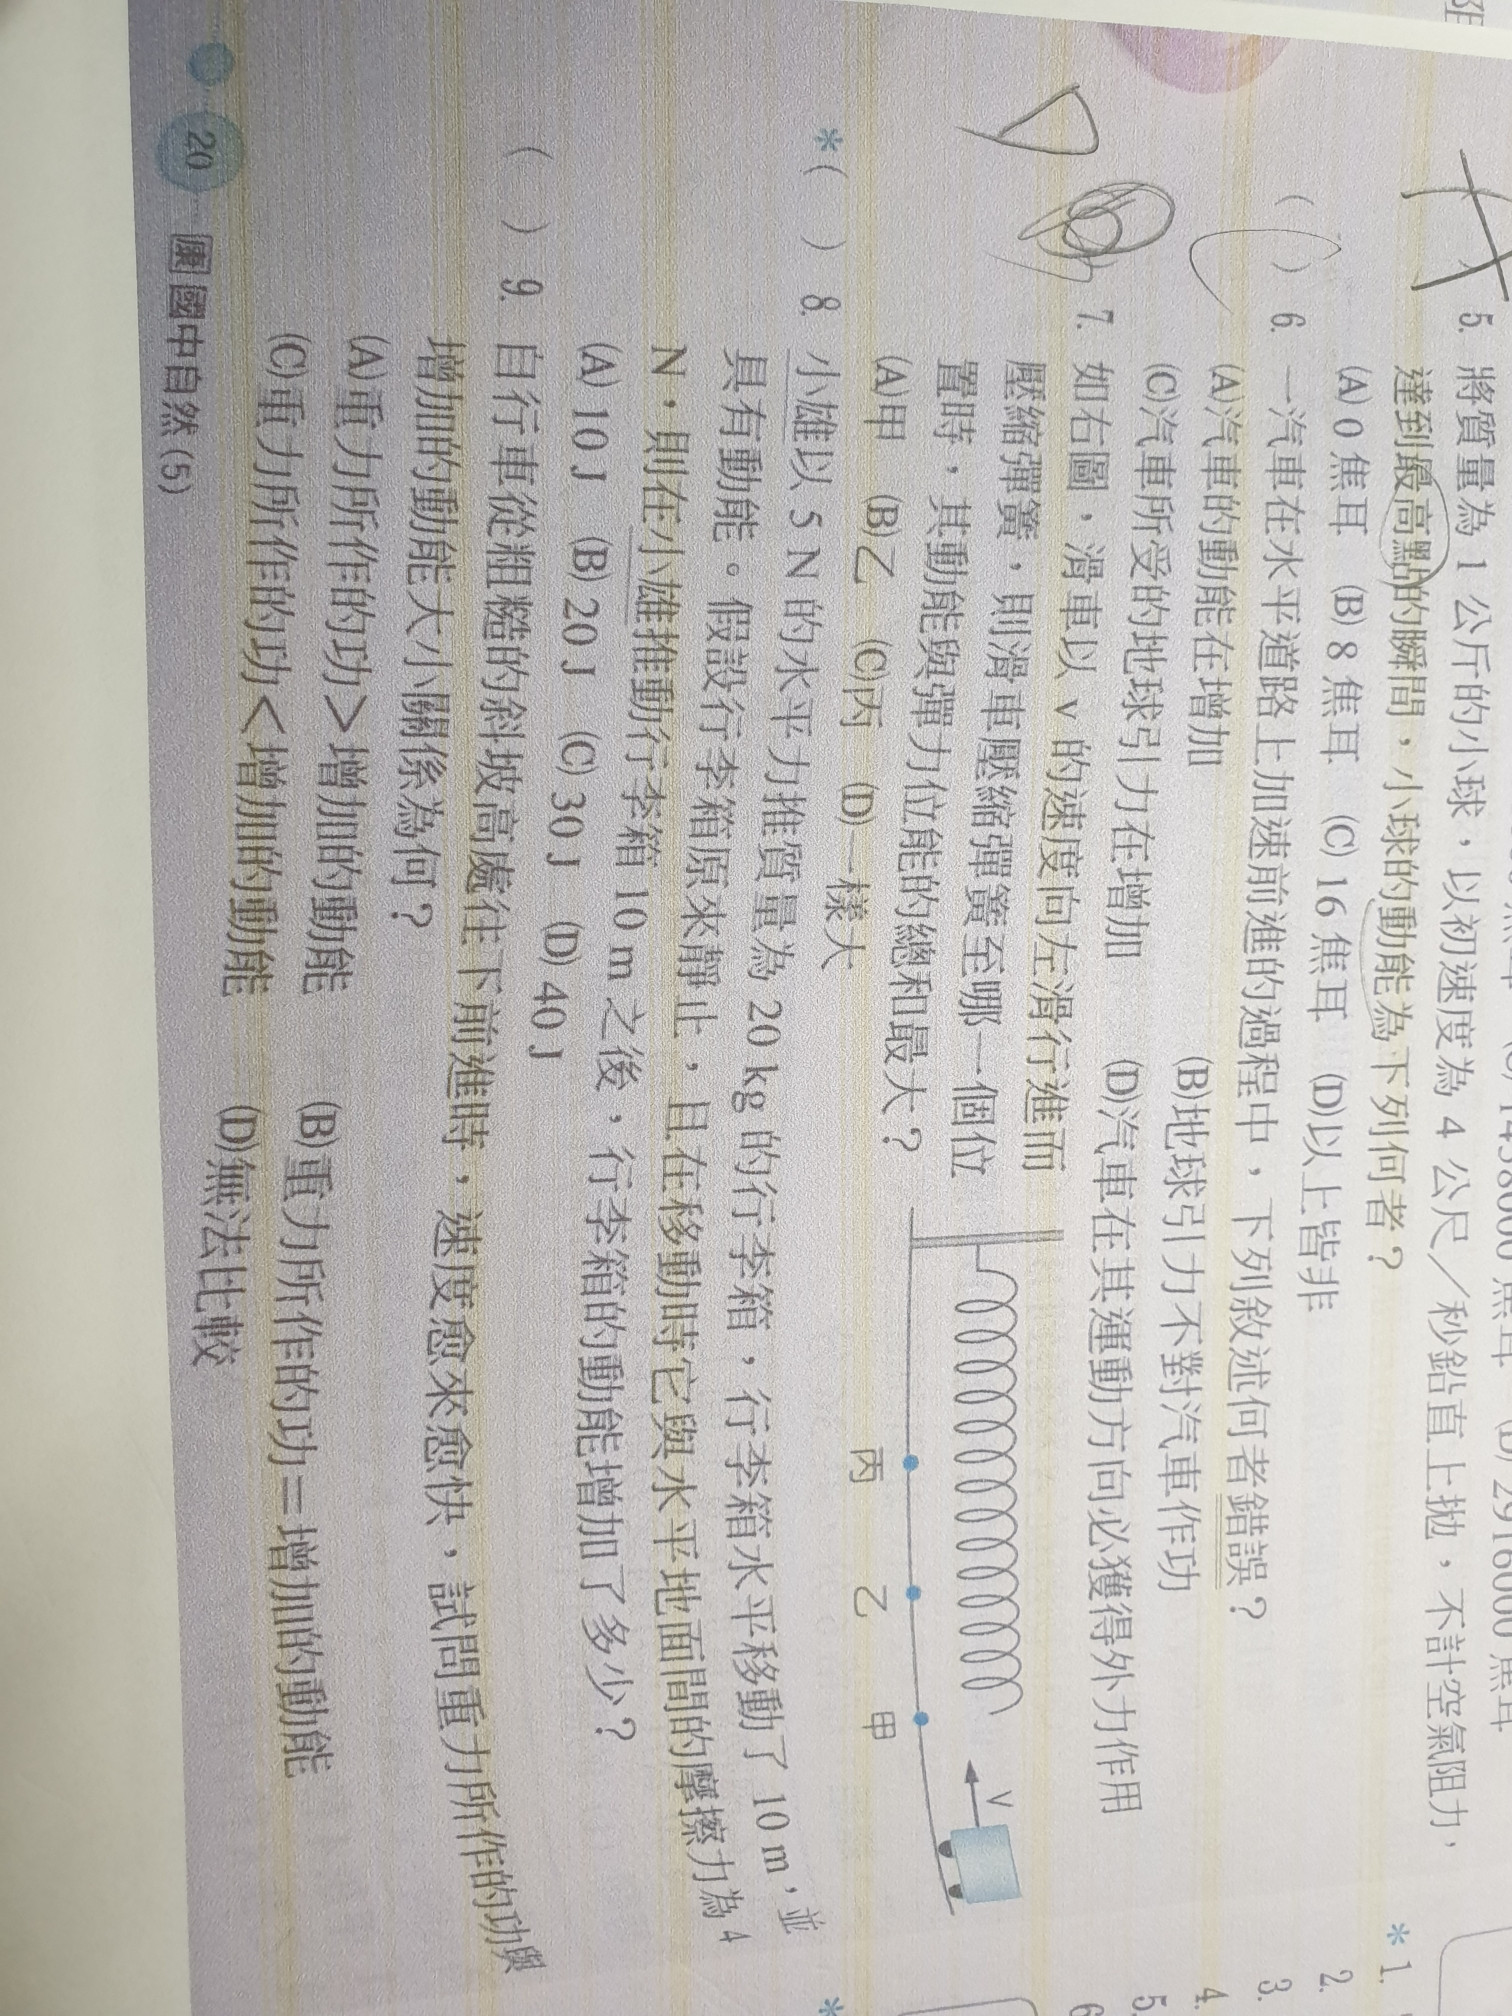 5. 將質量為 1 公斤的小球，以初速度為 4 公尺／秒鉛直上拋，不計空氣阻力，
達到最高點的瞬間，小球的動能為下列何者？
(A) 0 焦耳 (B) 8 焦耳 (C) 16 焦耳 (D)以上皆非
( ) 6. 一汽車在水平道路上加速前進的過程中，下列敘述何者錯誤？
(A)汽車的動能在增加 (B)地球引力不對汽車作功
(C)汽車所受的地球引力在增加 (D)汽車在其運動方向必獲得外力作用
D
7. 如右圖，滑車以 v 的速度向左滑行進而
壓縮彈簧，則滑車壓縮彈簧至哪一個位
置時，其動能與彈力位能的總和最大？
(A)甲 (B)乙 (C)丙 (D)一樣大
v
丙 乙 甲
*( ) 8. 小雄以 5 N 的水平力推質量為 20 kg 的行李箱，行李箱水平移動了 10 m，並
具有動能。假設行李箱原來靜止，且在移動時它與水平地面間的摩擦力為 4
N，則在小雄推動行李箱 10 m 之後，行李箱的動能增加了多少？
(A) 10 J (B) 20 J (C) 30 J (D) 40 J
( ) 9. 自行車從粗糙的斜坡高處往下前進時，速度愈來愈快，試問重力所作的功與
增加的動能大小關係為何？
(A)重力所作的功＞增加的動能 (B)重力所作的功＝增加的動能
(C)重力所作的功＜增加的動能 (D)無法比較
20 康 國中自然 (5)
* 1.
2.
3.
4.
5.
6
*